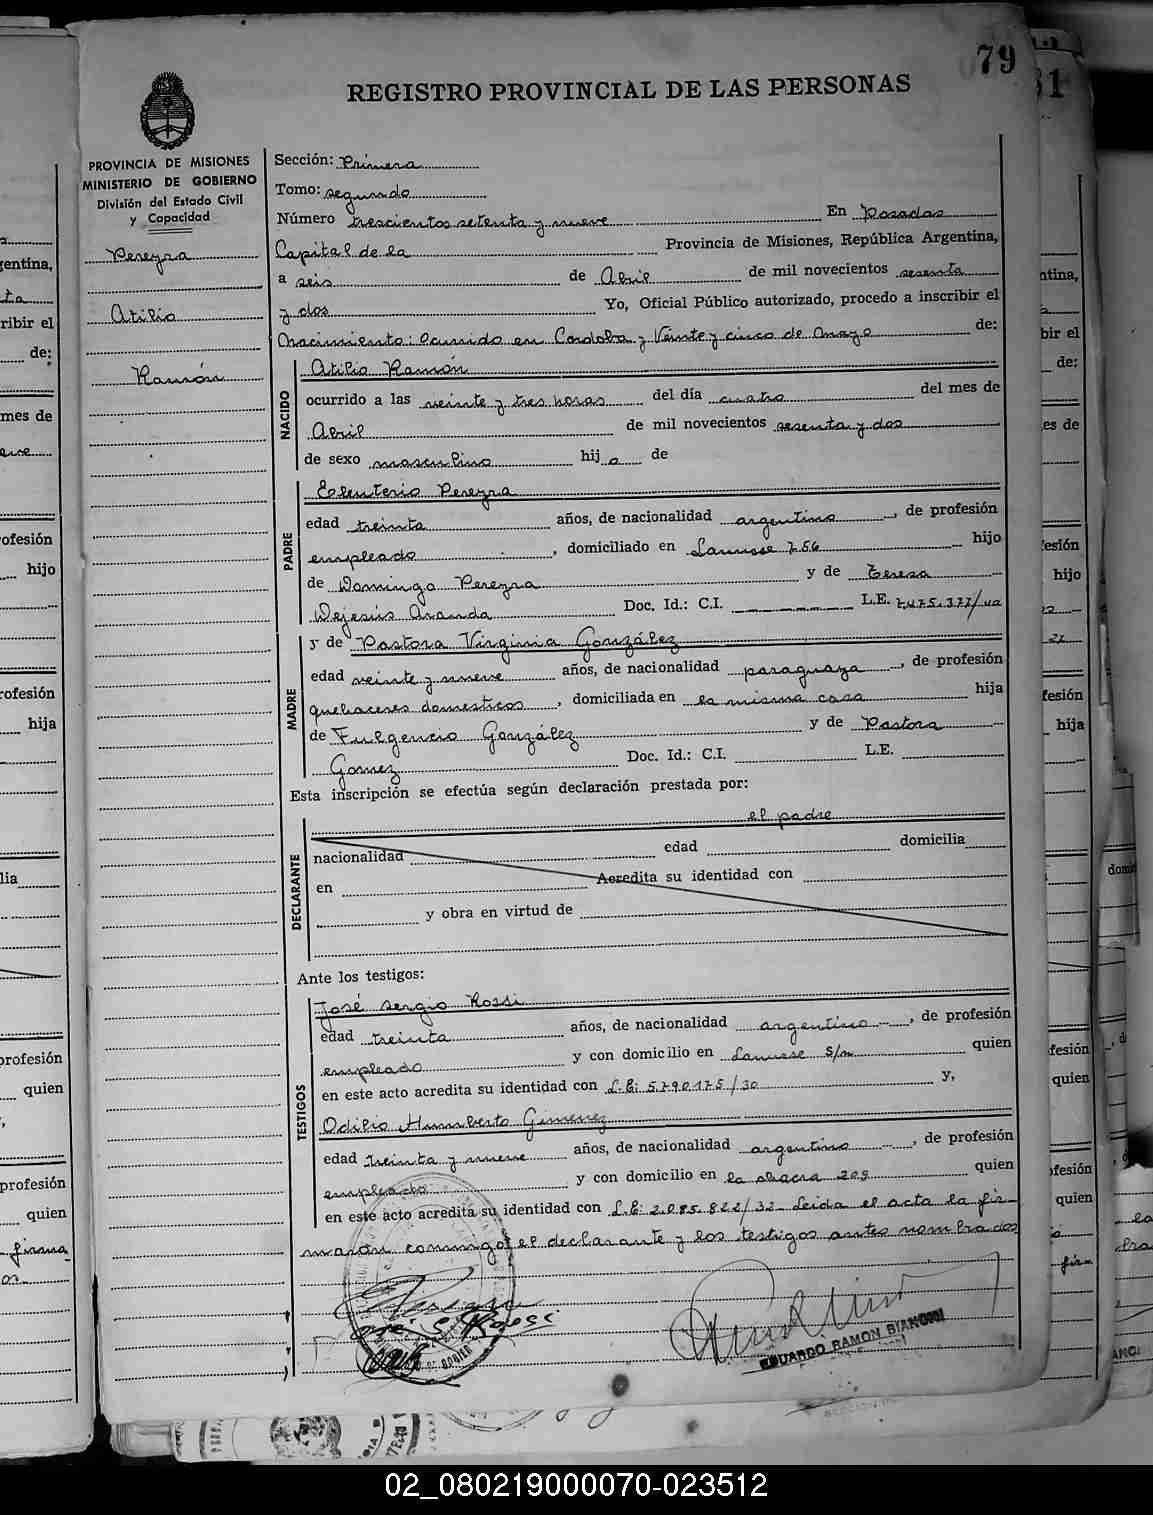 79
REGISTRO PROVINCIAL DE LAS PERSONAS
PROVINCIA DE MISIONES
MINISTERIO DE GOBIERNO
División del Estado Civil
y Capacidad
Pereyra
Atilio
Ramón
Sección: Primera
Tomo: segundo
Número trescientos setenta y nueve En Posadas
Capital de la Provincia de Misiones, República Argentina,
a seis de Abril de mil novecientos sesenta
y dos Yo, Oficial Público autorizado, procedo a inscribir el
Nacimiento: ocurrido en Cordoba y Veinte y cinco de Mayo de:
NACIDO
Atilio Ramón
ocurrido a las veinte y tres horas del día cuatro del mes de
Abril de mil novecientos sesenta y dos
de sexo masculino hijo de
PADRE
Eleuterio Pereyra
edad treinta años, de nacionalidad argentino, de profesión
empleado, domiciliado en Lanusse 756 hijo
de Domingo Pereyra y de Teresa
Dejesús Aranda Doc. Id.: C.I. L.E. 7.475.377/
MADRE
y de Pastora Virginia González
edad veinte y nueve años, de nacionalidad paraguaya, de profesión
quehaceres domesticos, domiciliada en la misma casa hija
de Fulgencio González y de Pastora
Gomez Doc. Id.: C.I. L.E.
Esta inscripción se efectúa según declaración prestada por:
DECLARANTE
el padre
nacionalidad edad domicilia
en Acredita su identidad con
y obra en virtud de
Ante los testigos:
TESTIGOS
José Sergio Rossi
edad treinta años, de nacionalidad argentino, de profesión
empleado y con domicilio en Lanusse S/n quien
en este acto acredita su identidad con L.E: 5.790.175/30 y,
Odilio Humberto Gimenez
edad treinta y nueve años, de nacionalidad argentino, de profesión
empleado y con domicilio en la chacra 209 quien
en este acto acredita su identidad con L.E: 2.085.822/32 - Leida el acta la fir-
maron conmigo: el declarante y los testigos antes nombrados
José S. Rossi
EDUARDO RAMON BIANCHI
02_080219000070-023512